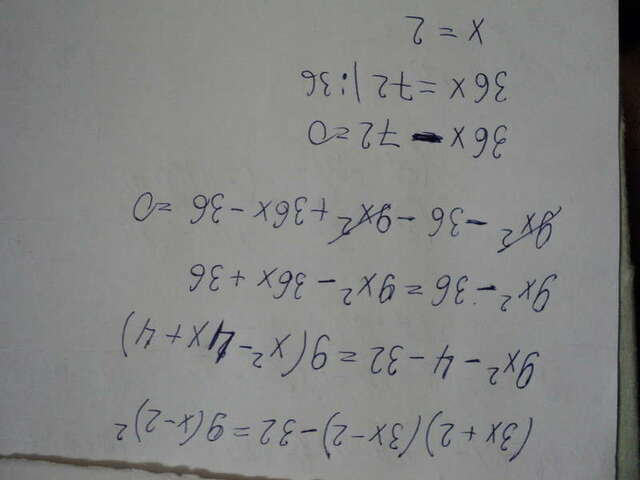 (3x+2)(3x-2)-32=9(x-2)²
9x²-4-32=9(x²-4x+4)
9x²-36=9x²-36x+36
9x²-36-9x²+36x-36=0
36x-72=0
36x=72 |:36
x=2